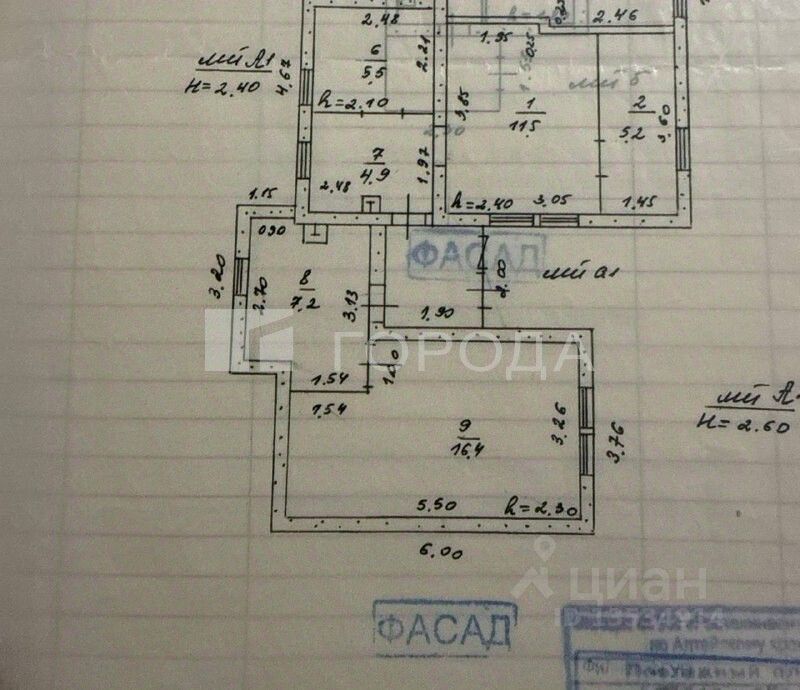 2.48
2.46
1.95
0.25
6
5.5
2.21
лит А1
H=2.40
4.67
h=2.10
3.85
1
11.5
лит Б
2
5.2
3.60
7
4.9
1.97
2.48
h=2.40
3.05
1.45
1.15
0.90
ФАСАД
3.20
2.70
8
7.2
3.13
2.00
лит а1
1.90
ГОРОДА
1.54
1.00
7.54
лит А
H=2.60
9
16.4
3.26
3.76
5.50
h=2.30
6.00
циан
ФАСАД